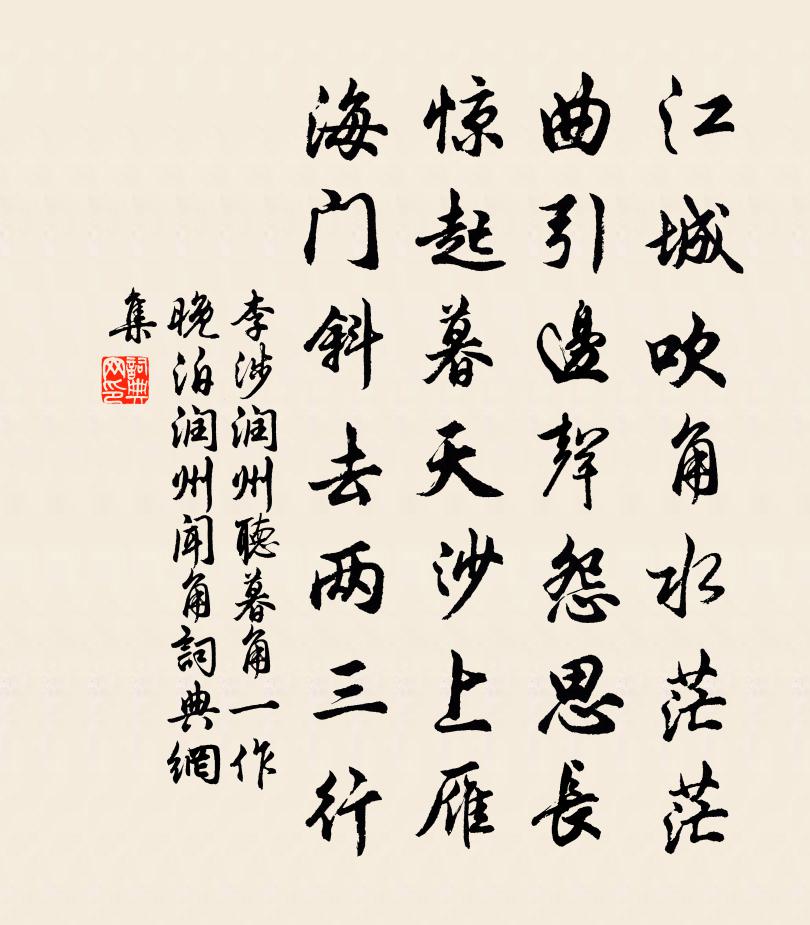 江城吹角水茫茫
曲引邊聲怨思長
惊起暮天沙上雁
海门斜去两三行
李涉润州聽暮角一作
晚泊润州闻角詞典網
集
詞典
网印